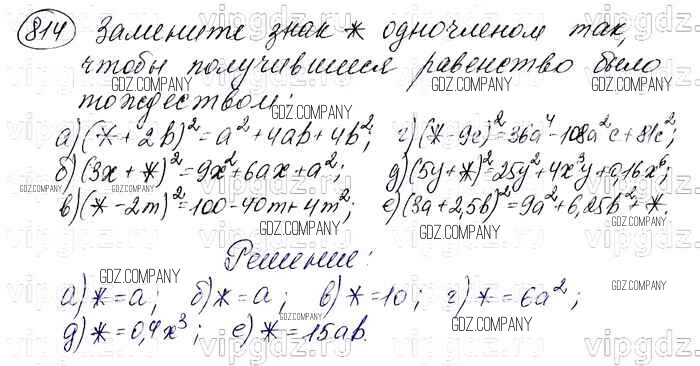 814) Замените знак * одночленом так,
чтобы получившееся равенство было
тождеством:
а) (* + 2b)² = a² + 4ab + 4b²; г) (* - 9c)² = 36a⁴ - 108a²c + 81c²;
б) (3x + *)² = 9x² + 6ax + a²; д) (5y + *)² = 25y² + 4x³y + 0,16x⁶;
в) (* - 2m)² = 100 - 40m + 4m²; е) (3a + 2,5b)² = 9a² + 6,25b² + *.
Решение:
а) * = a; б) * = a; в) * = 10; г) * = 6a²;
д) * = 0,4x³; е) * = 15ab.
vipgdz.com
GDZ.COMPANY